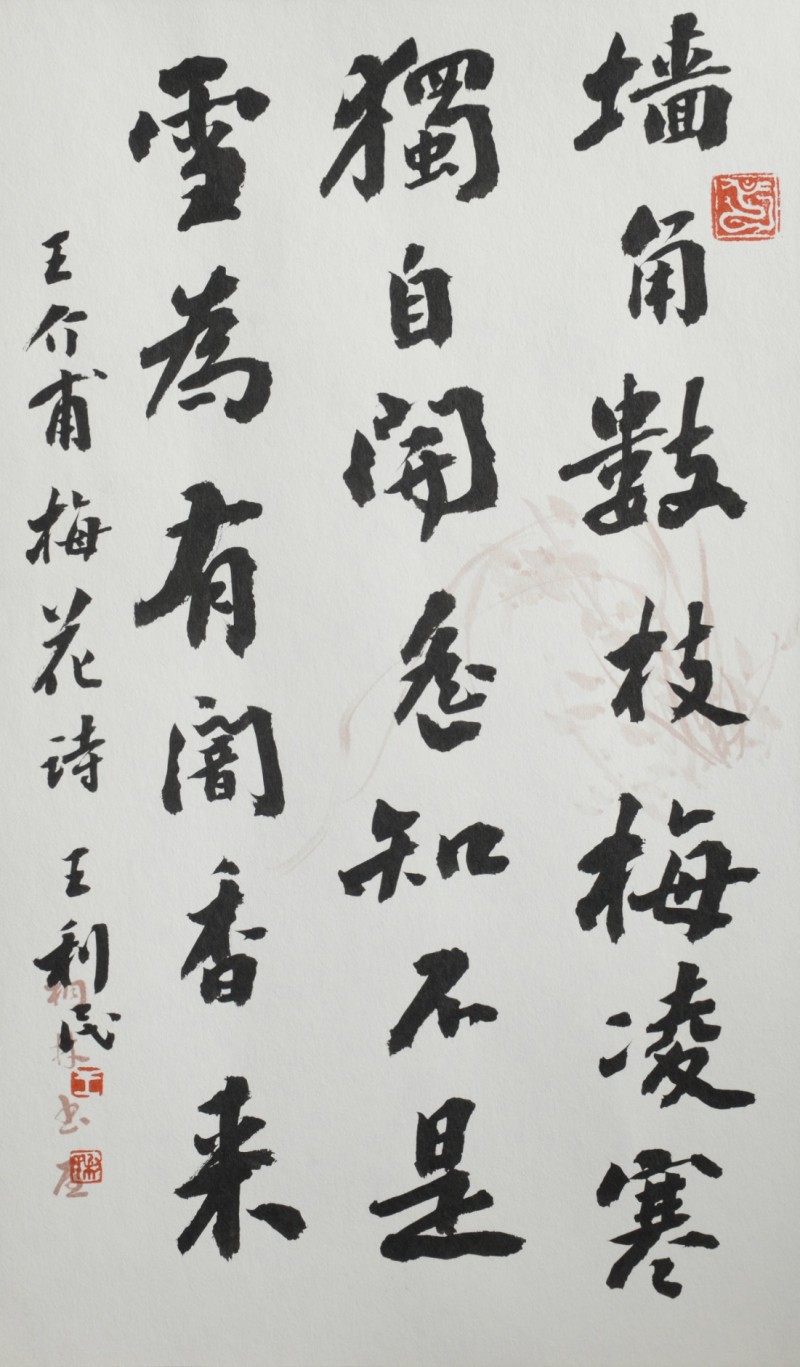 墙角數枝梅凌寒
獨自開遥知不是
雪為有闇香来
王介甫梅花诗 王利民